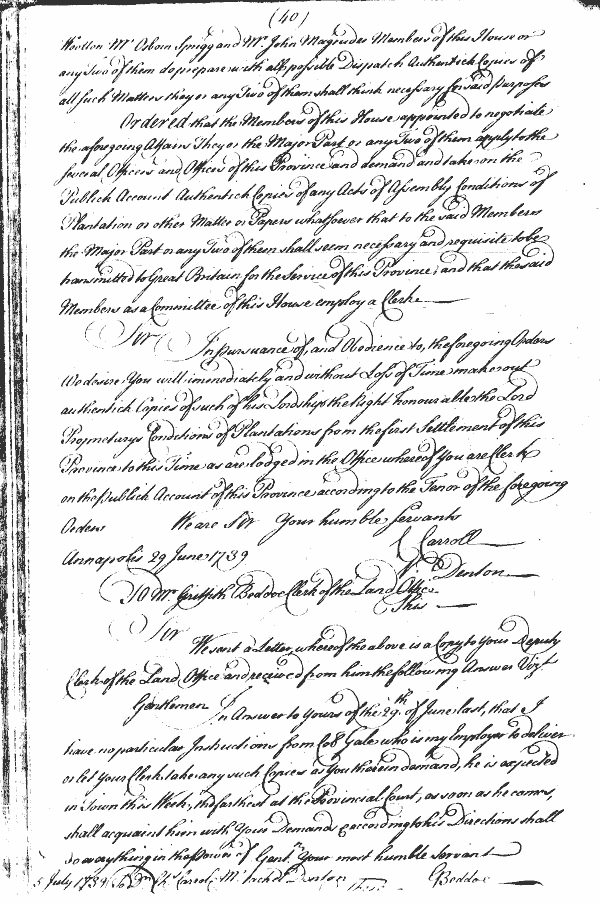 (40)
Wootton Mr Osborn Sprigg and Mr. John Magruder Members of this House or
any Two of them do prepare with all possible Dispatch Authentick Copies of
all such Matters they or any Two of them shall think necessary for said Purposes
Ordered that the Members of this House appointed to negotiate
the aforegoing Affairs They or the Major Part or any Two of them apply to the
several Officers and Offices of this Province and demand and take on the
Publick Account Authentick Copies of any Acts of Assembly Conditions of
Plantation or other Matter or Papers whatsoever that to the said Members
the Major Part or any Two of them shall seem necessary and requisite to be
transmitted to Great Britain for the Service of this Province, and that the said
Members as a Committee of this House employ a Clerk
Sir In pursuance of, and Obedience to, the foregoing Orders
We desire You will immediately and without Loss of Time make out
authentick Copies of such of his Lordships the Right honourable the Lord
Proprietarys Conditions of Plantations from the first Settlement of this
Province to this Time as are lodged in the Office whereof You are Clerk
on the Publick Account of this Province according to the Tenor of the foregoing
Orders We are Sir Your humble Servants
Annapolis 29 June 1739 C Carroll
V. Denton
To Mr Griffith Beddoe Clerk of the Land Office
This
Sir
We sent a Letter, whereof the above is a Copy to Your Deputy
Clerk of the Land Office and received from him the following Answer Vizt
Gentlemen In Answer to Yours of the 29th of June last, that I
have no particular Instructions from Col Gale who is my Employer to deliver
or let Your Clerk take any such Copies as You therein demand, he is expected
in Town this Week, the farthest at the Provincial Court, as soon as he comes,
shall acquaint him with Your Demands & according to his Directions shall
do every thing in the Power of Gentn Your most humble Servant
5 July 1739 To Dr Chs Carroll Mr Vachel Denton Beddoe